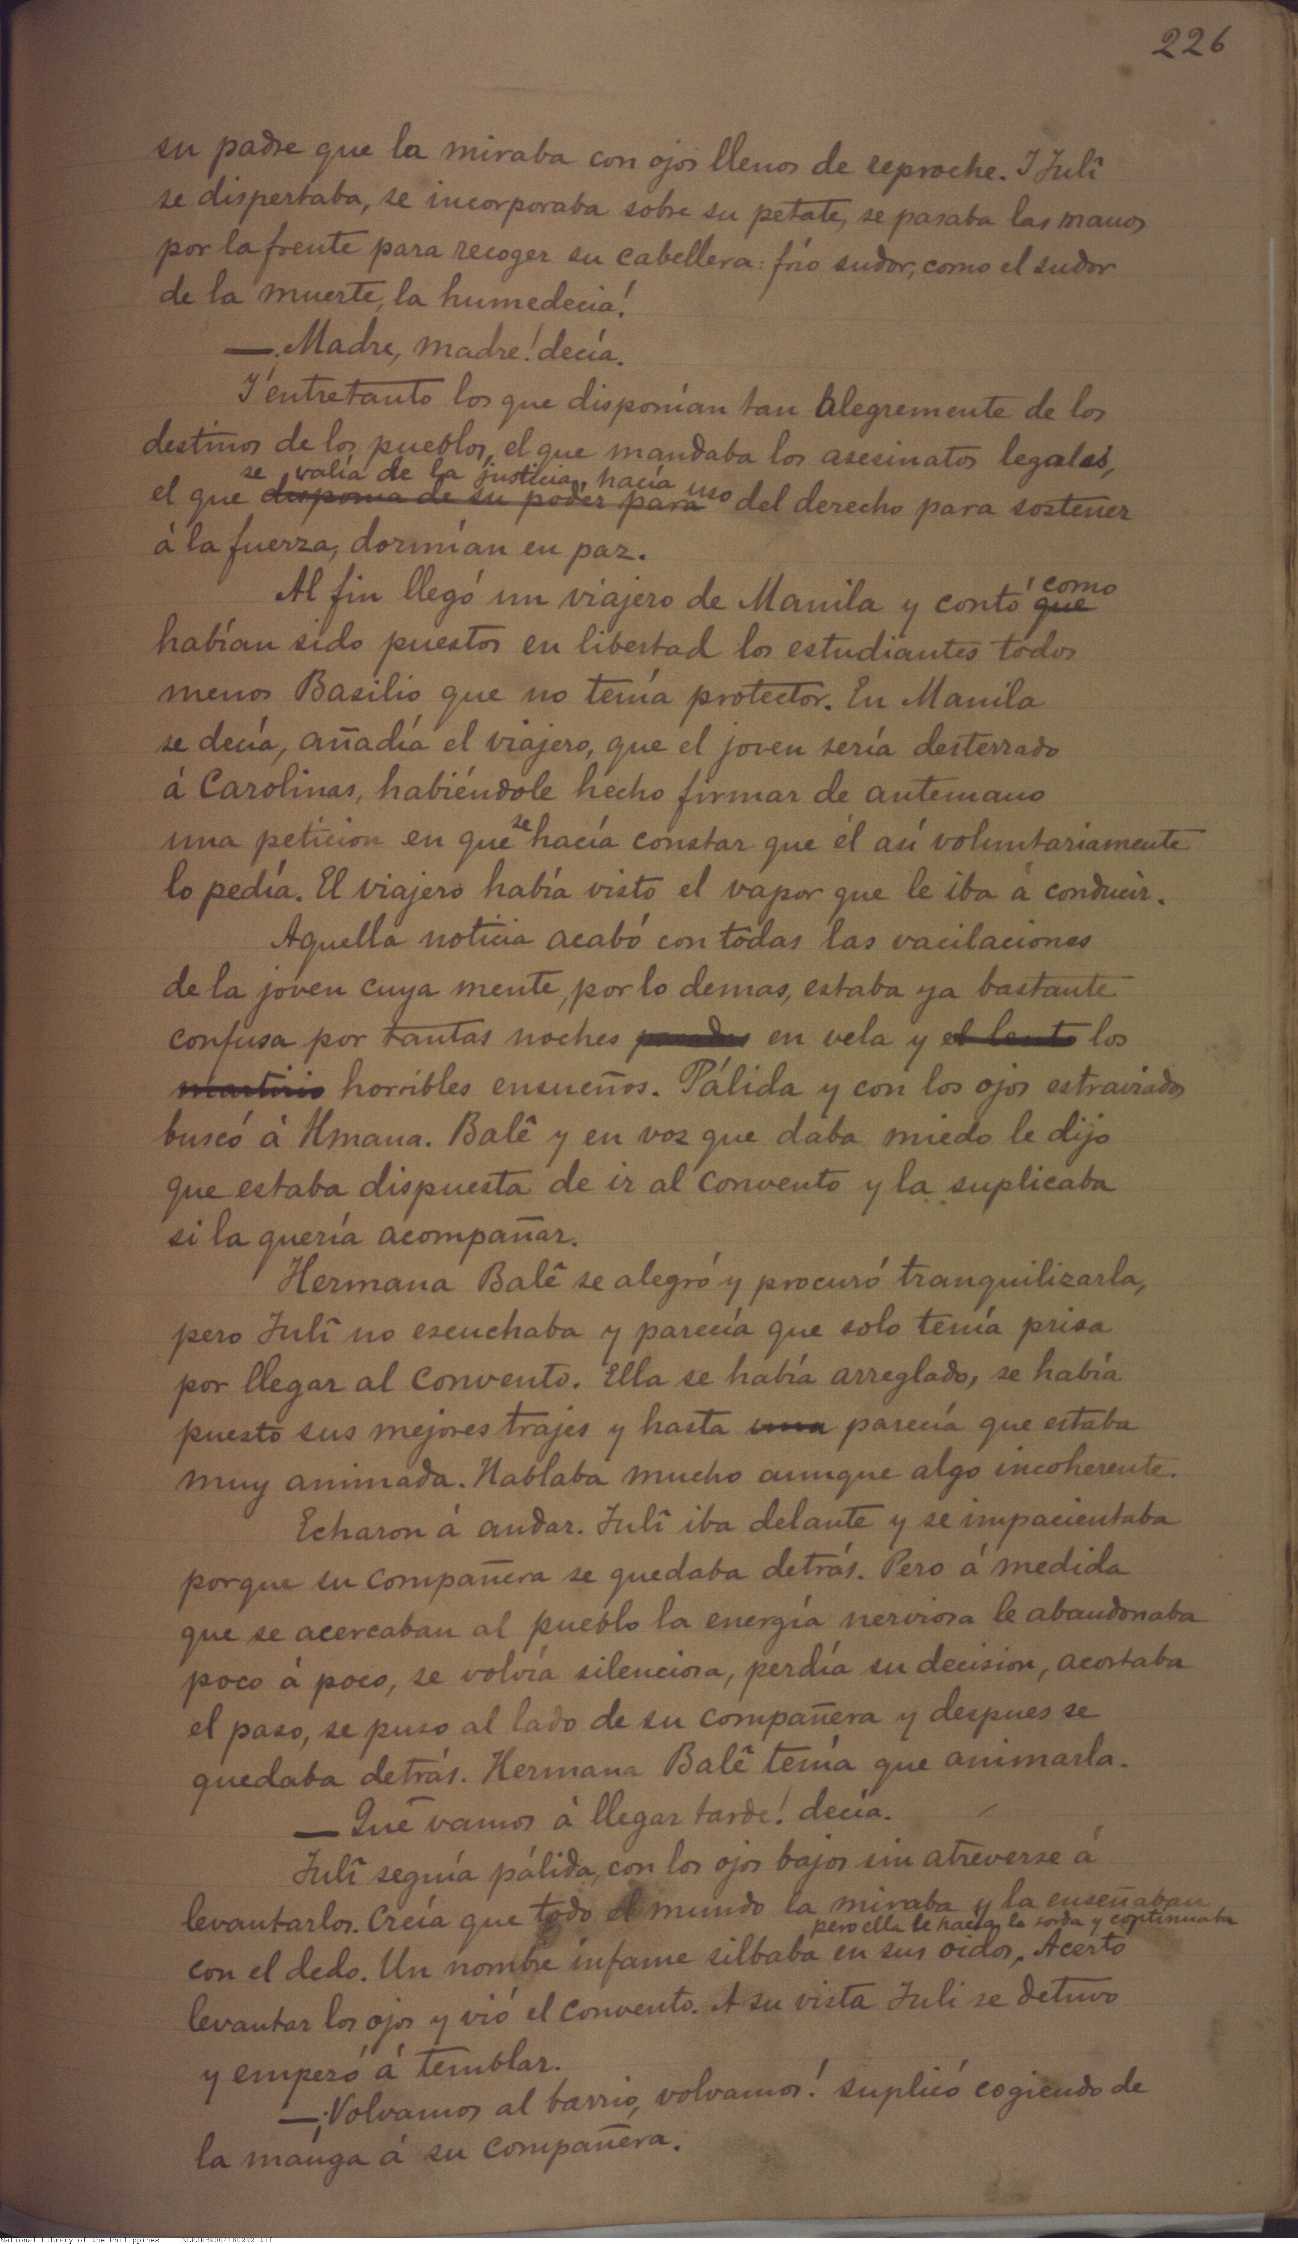 226
su padre que la miraba con ojos llenos de reproche. I Julî
se dispertaba, se incorporaba sobre su petate, se pasaba las manos
por la frente para recoger su cabellera: frío sudor, como el sudor
de la muerte, la humedecia!
—¡Madre, madre! decía.
Y entretanto los que disponían tan alegremente de los
destinos de los pueblos, el que mandaba los asesinatos legales,
se valía de la justicia, hacía uso
el que disponia de su poder para del derecho para sostener
á la fuerza, dormían en paz.
como
Al fin llegó un viajero de Manila y contó que
habían sido puestos en libertad los estudiantes todos
menos Basilio que no tenía protector. En Manila
se decía, añadía el viajero, que el joven sería desterrado
á Carolinas, habiéndole hecho firmar de antemano
una peticion en que se hacía constar que él así voluntariamente
lo pedía. El viajero había visto el vapor que le iba á conducir.
Aquella noticia acabó con todas las vacilaciones
de la joven cuya mente, por lo demas, estaba ya bastante
confusa por tantas noches pasadas en vela y el lento los
martirio horribles ensueños. Pálida y con los ojos estraviados
buscó á Hmana. Balê y en voz que daba miedo le dijo
que estaba dispuesta de ir al convento y la suplicaba
si la quería acompañar.
Hermana Balê se alegró y procuró tranquilizarla,
pero Julî no escuchaba y parecía que solo tenía prisa
por llegar al convento. Ella se había arreglado, se había
puesto sus mejores trajes y hasta una parecía que estaba
muy animada. Hablaba mucho aunque algo incoherente.
Echaron á andar. Julî iba delante y se impacientaba
porque su compañera se quedaba detrás. Pero á medida
que se acercaban al pueblo la energía nerviosa le abandonaba
poco á poco, se volvía silenciosa, perdía su decision, acortaba
el paso, se puso al lado de su compañera y despues se
quedaba detrás. Hermana Balê tenía que animarla.
—Que vamos á llegar tarde! decía.
Julî seguía pálida, con los ojos bajos sin atreverse á
levantarlos. Creía que todo el mundo la miraba y la enseñaban
pero ella se hacía la sorda y continuaba
con el dedo. Un nombre infame silbaba en sus oidos, Acertó
levantar los ojos y vió el convento. A su vista Juli se detuvo
y empezó á temblar.
—¡Volvamos al barrio, volvamos! suplicó cogiendo de
la manga á su compañera.
National Library of the Philippines